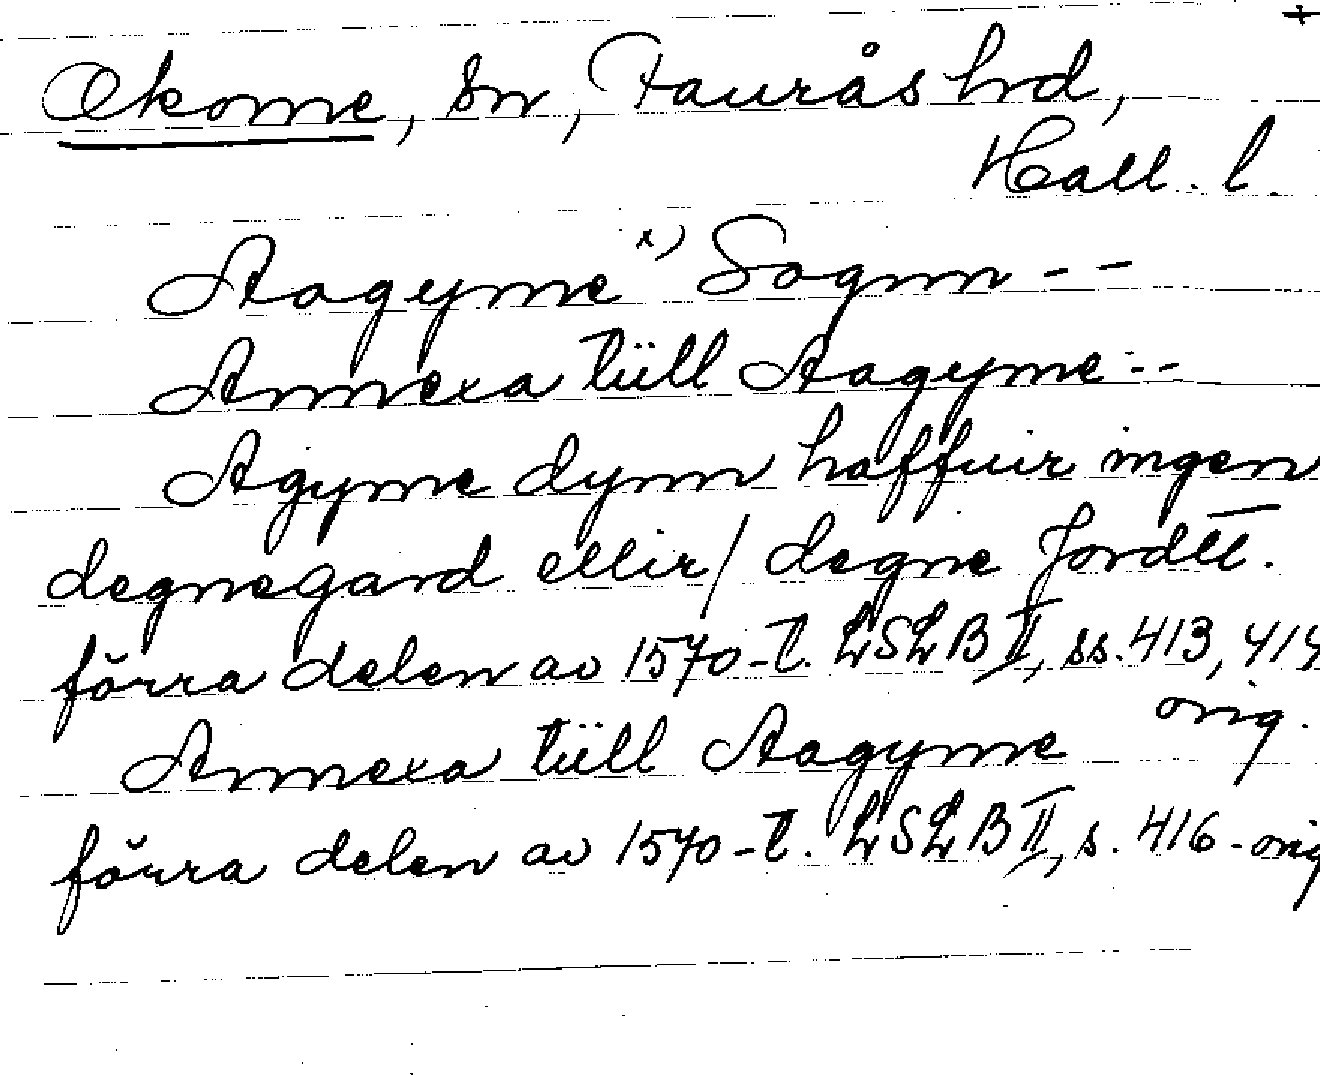 +
Økome, sn, Faurås hd,
Hall. l.
Aagyme x) Sognn - -
Annexa tüll Aagyme - -
Agyme dynn haffuir ingen
degnegard ellir / degne Jordtt.
förra delen av 1570-t. LSLB II, ss. 413, 414
orig.
Annexa tüll Aagyme
förra delen av 1570-t. LSLB II, s. 416 - orig